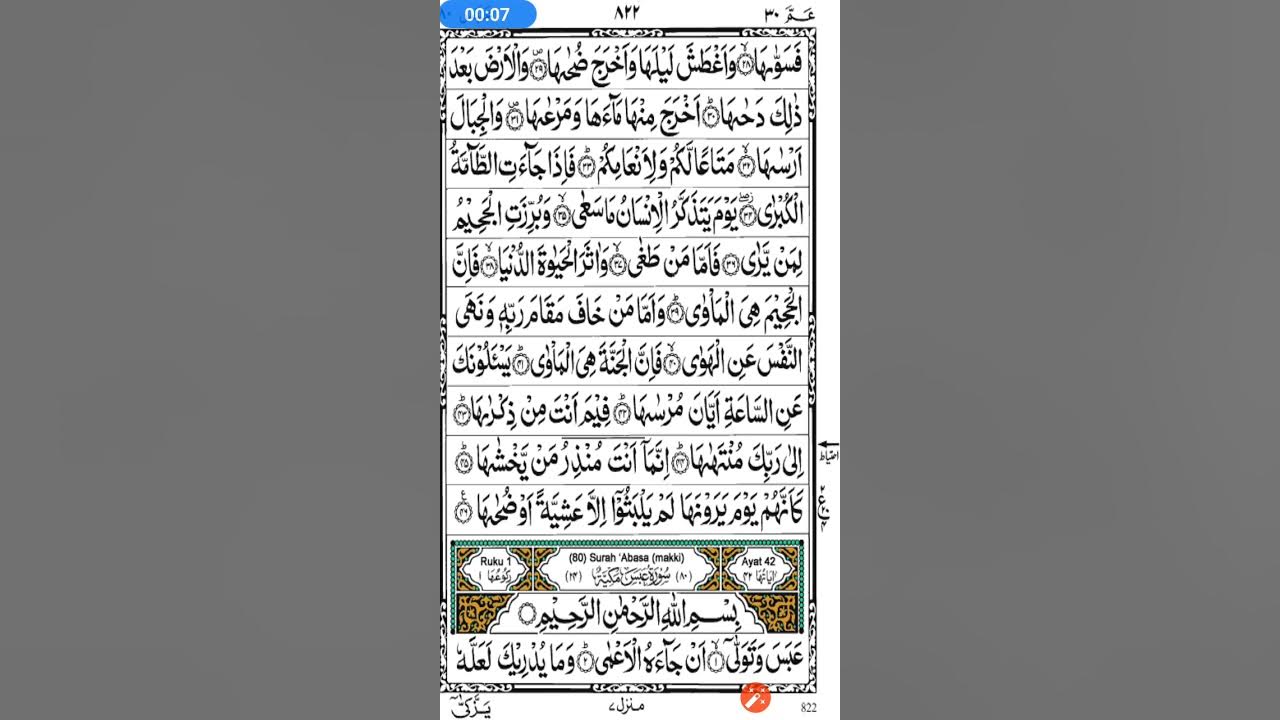 00:07
عَمَّ ٣٠
٨٢٢
فَسَوّٰىهَا ﴿٢٨﴾ وَاَغْطَشَ لَيْلَهَا وَاَخْرَجَ ضُحٰىهَا ﴿٢٩﴾ وَالْاَرْضَ بَعْدَ
ذٰلِكَ دَحٰىهَا ﴿٣٠﴾ اَخْرَجَ مِنْهَا مَآءَهَا وَمَرْعٰىهَا ﴿٣١﴾ وَالْجِبَالَ
اَرْسٰىهَا ﴿٣٢﴾ مَتَاعًا لَّكُمْ وَلِاَنْعَامِكُمْ ﴿٣٣﴾ فَاِذَا جَآءَتِ الطَّآمَّةُ
الْكُبْرٰى ﴿٣٤﴾ يَوْمَ يَتَذَكَّرُ الْاِنْسَانُ مَا سَعٰى ﴿٣٥﴾ وَبُرِّزَتِ الْجَحِيْمُ
لِمَنْ يَّرٰى ﴿٣٦﴾ فَاَمَّا مَنْ طَغٰى ﴿٣٧﴾ وَاٰثَرَ الْحَيٰوةَ الدُّنْيَا ﴿٣٨﴾ فَاِنَّ
الْجَحِيْمَ هِىَ الْمَاْوٰى ﴿٣٩﴾ وَاَمَّا مَنْ خَافَ مَقَامَ رَبِّهٖ وَنَهَى
النَّفْسَ عَنِ الْهَوٰى ﴿٤٠﴾ فَاِنَّ الْجَنَّةَ هِىَ الْمَاْوٰى ﴿٤١﴾ يَسْئَلُوْنَكَ
عَنِ السَّاعَةِ اَيَّانَ مُرْسٰىهَا ﴿٤٢﴾ فِيْمَ اَنْتَ مِنْ ذِكْرٰىهَا ﴿٤٣﴾
اِلٰى رَبِّكَ مُنْتَهٰىهَا ﴿٤٤﴾ اِنَّمَآ اَنْتَ مُنْذِرُ مَنْ يَّخْشٰىهَا ﴿٤٥﴾
احتياط
كَاَنَّهُمْ يَوْمَ يَرَوْنَهَا لَمْ يَلْبَثُوْٓا اِلَّا عَشِيَّةً اَوْ ضُحٰىهَا ﴿٤٦﴾
Ruku 1 (80) Surah 'Abasa (makki) Ayat 42
اٰيَاتُهَا ٤٢ (٨٠) سُوْرَةُ عَبَسَ مَكِّيَّةٌ (٢٤) رُكُوْعُهَا ١
بِسْمِ اللّٰهِ الرَّحْمٰنِ الرَّحِيْمِ
عَبَسَ وَتَوَلّٰىٓ ﴿١﴾ اَنْ جَآءَهُ الْاَعْمٰى ﴿٢﴾ وَمَا يُدْرِيْكَ لَعَلَّهٗ
822
منزل ٧
يَزَّكّٰىٓ